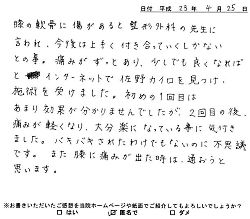 日付 平成 23年 4月 25日
膝の軟骨に傷があると整形外科の先生に
言われ、今後は上手く付き合っていくしかない
との事。痛みがずっとあり、少しでも良くなれば
と インターネットで佐野カイロを見つけ、
施術を受けました。初めの1回目は
あまり効果が分かりませんでしたが、2回目の後、
痛みが軽くなり、大分楽になっている事に気付き
ました。バキバキされたわけでもないのに不思議
です。また膝に痛みが出た時は、通おうと
思います。
※お書きいただいたご感想を当院ホームページや紙面でご紹介してもよろしいでしょうか?
□ はい ☑ 匿名で □ ダメ